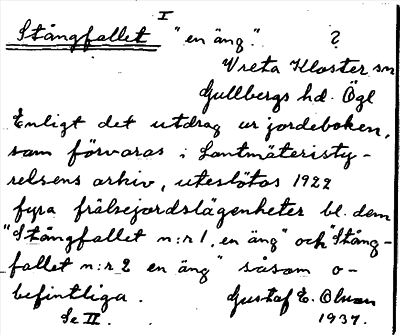 I
Stångfallet "en äng". ?
Vreta Kloster sn
Gullbergs hd. Ögl
Enligt det utdrag ur jordeboken,
som förvaras i Lantmäteristy-
relsens arkiv, uteslötos 1922
fyra frälsejordslägenheter bl. dem
"Stångfallet n:r 1, en äng" och "Stång-
fallet n:r 2 en äng" såsom o-
befintliga. Gustaf E. Olsson
Se II. 1937.